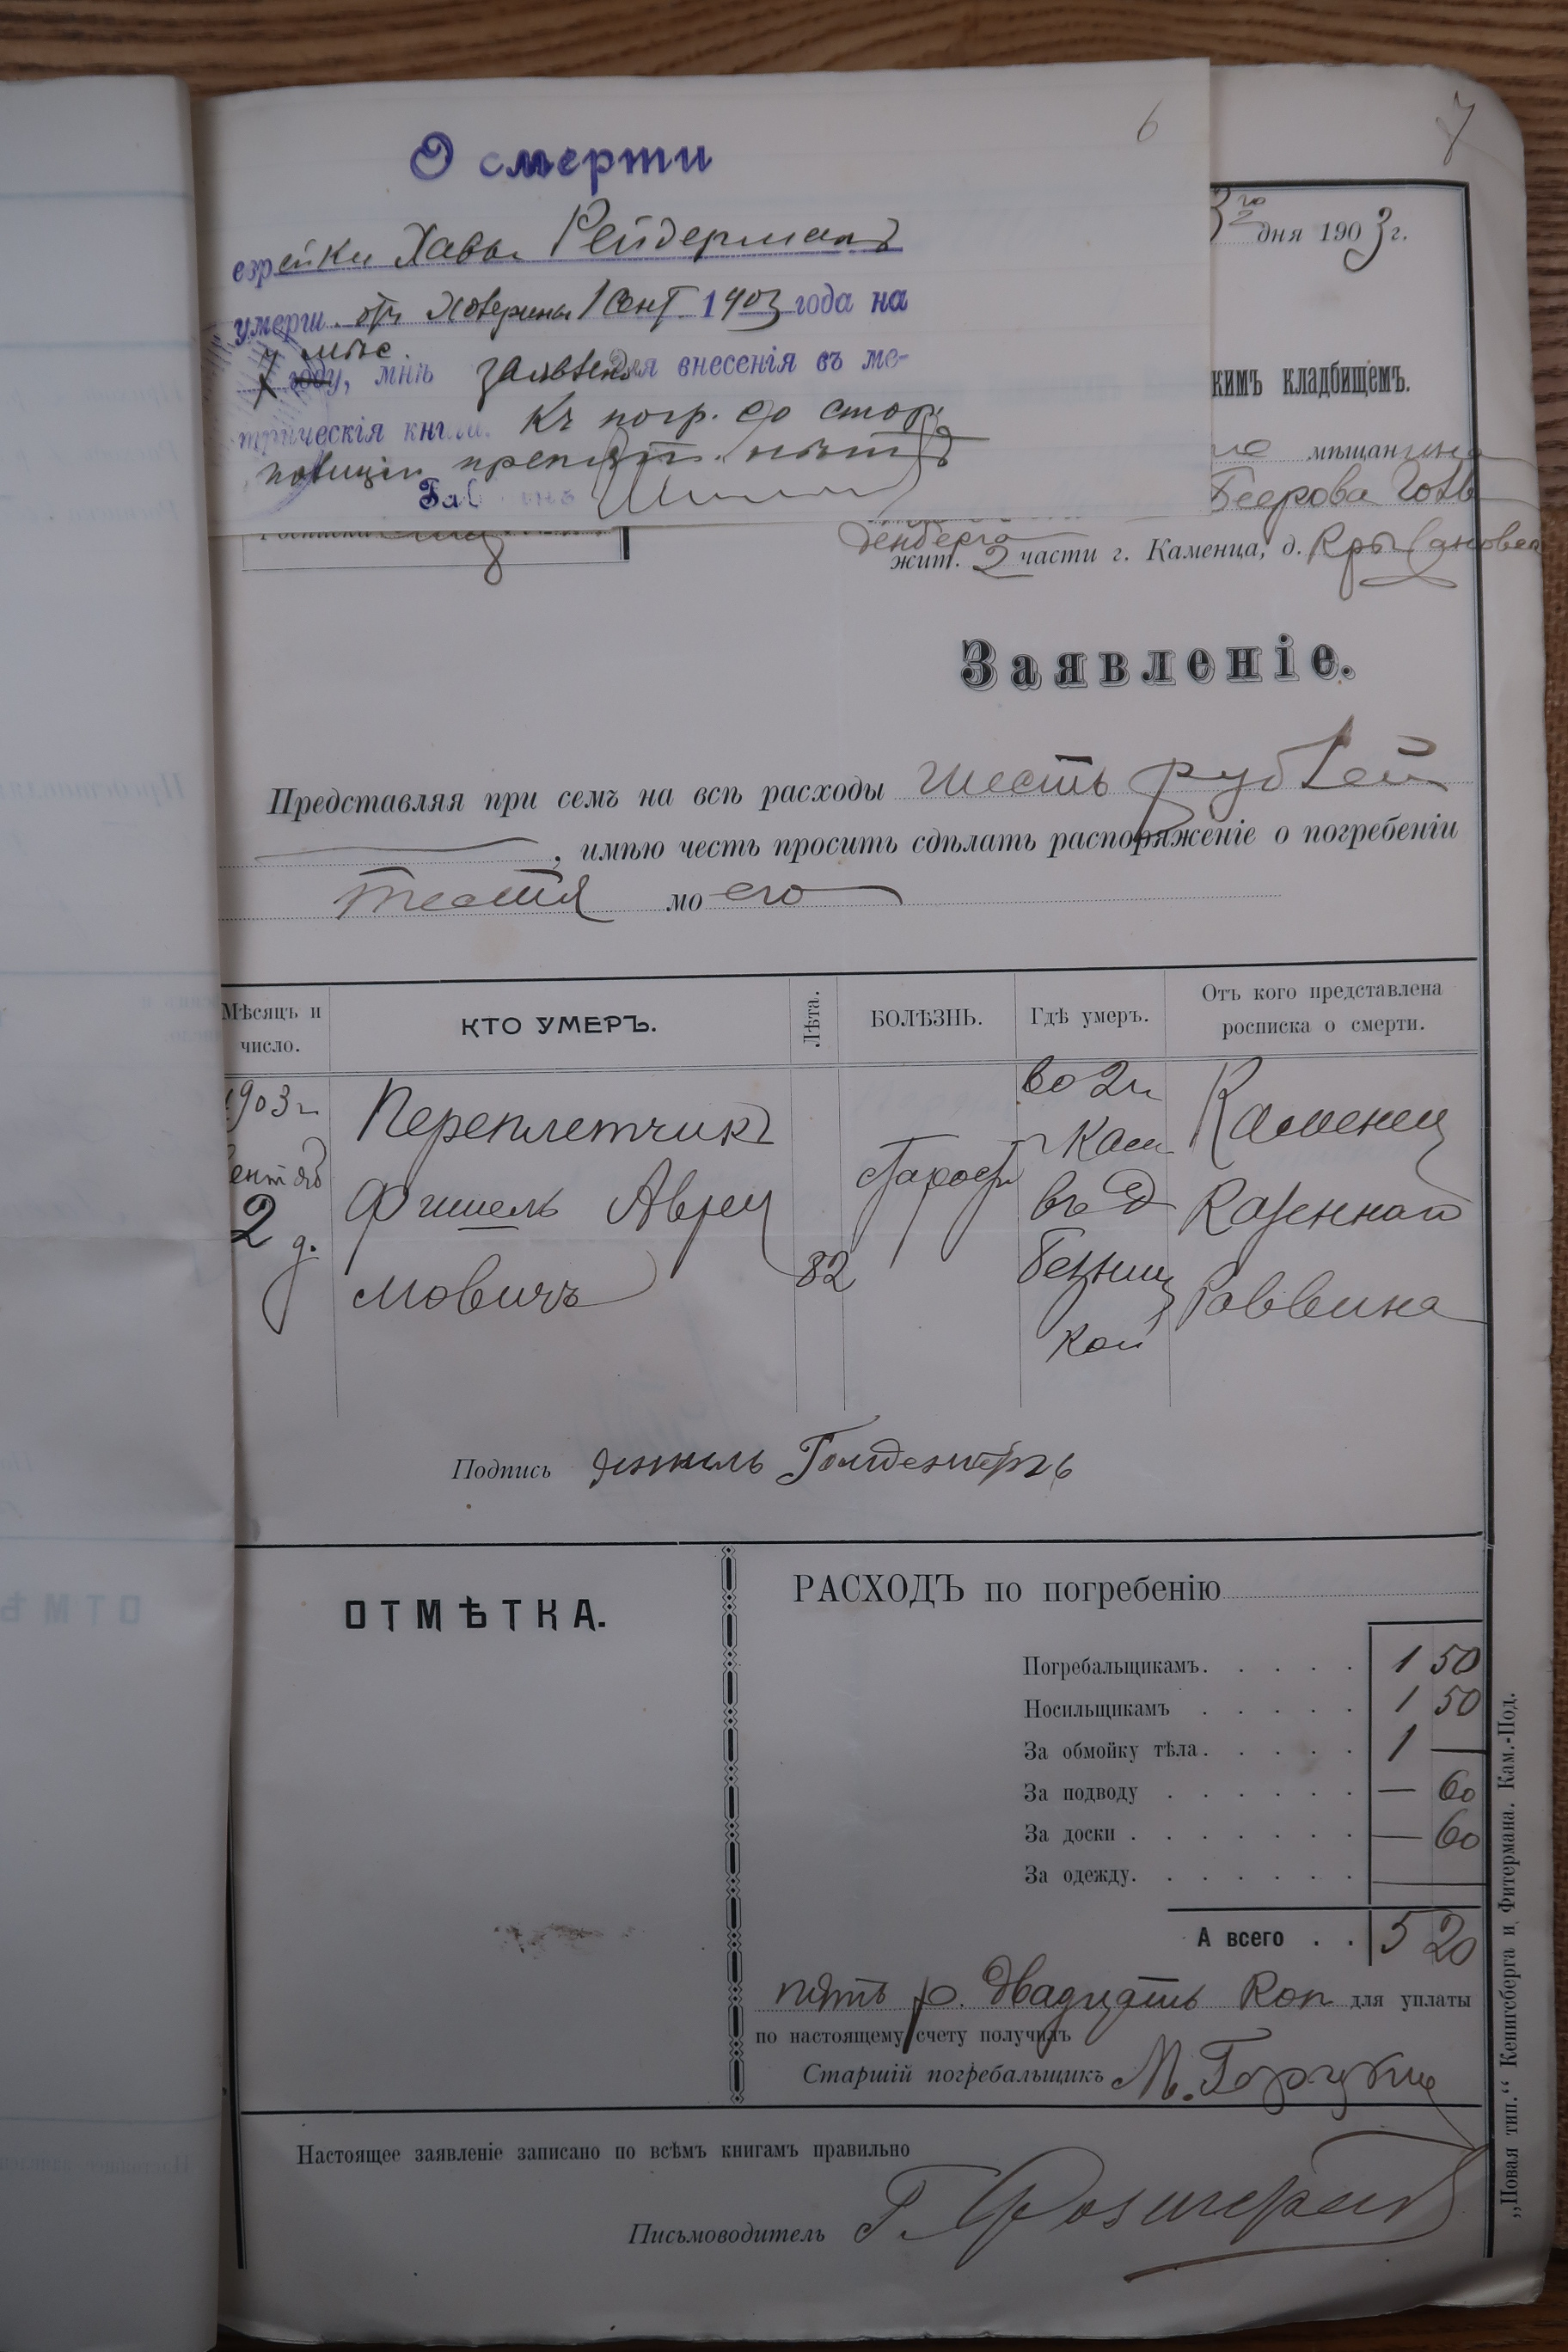 6
7
О смерти
еврейки Хавы Рейдерманъ
умерш. отъ Холерины 1 Сент. 1903 года на
4 мѣс.
году, мнѣ заявлено для внесенія въ ме-
трическія книги. Къ погр. со стор.
полиціи препят. нѣтъ
3го дня 1903 г.
кимъ кладбищемъ.
мѣщанина
Беерова Голь
денберга
жит. 2 части г. Каменца, д.
Заявленіе.
Представляя при семъ на всѣ расходы шесть рублей
, имѣю честь просить сдѣлать распоряженіе о погребеніи
тестя моего
Мѣсяцъ и число.
КТО УМЕРЪ.
Лѣта.
БОЛѢЗНЬ.
Гдѣ умеръ.
Отъ кого представлена росписка о смерти.
1903 г.
Сентяб
2 д.
Переплетчикъ
Фишель Аврум
мовичъ
82
старость
во 2 ч
г Кам
въ д
Каменец
Казеннаго
Раввина
Подпись Янкель Голденбергъ
ОТМѢТКА.
РАСХОДЪ по погребенію
Погребальщикамъ. 1 50
Носильщикамъ 1 50
За обмойку тѣла. 1 —
За подводу — 60
За доски — 60
За одежду.
А всего 5 20
пять р. двадцать коп для уплаты
по настоящему счету получилъ
Старшій погребальщикъ М.
Настоящее заявленіе записано по всѣмъ книгамъ правильно
Письмоводитель
„Новая тип.“ Кенигсберга и Фитермана. Кам.-Под.